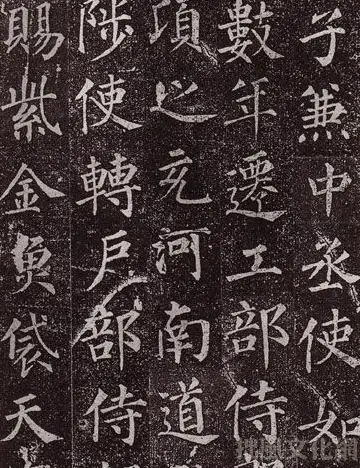 子兼中丞使如
數年遷工部侍
頃之充河南道
陟使轉戶部侍
賜紫金魚袋天